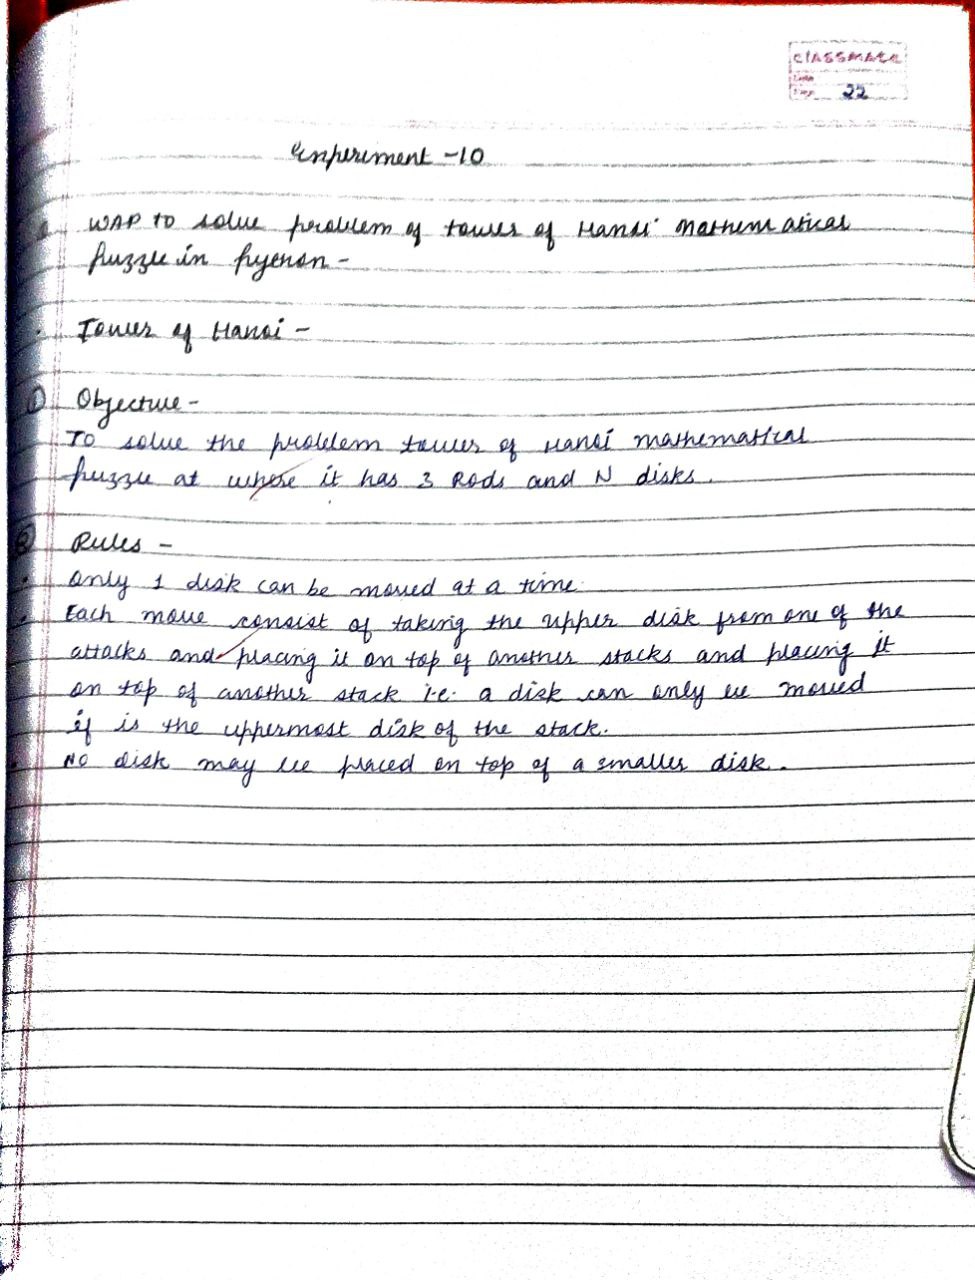 classmate
Date
Page 22
Experiment -10
WAP to solve problem of tower of Hanoi Mathematical
puzzle in python -
Tower of Hanoi -
① Objective -
To solve the problem tower of Hanoi mathematical
puzzle at where it has 3 Rods and N disks.
② Rules -
• Only 1 disk can be moved at a time.
• Each move consist of taking the upper disk from one of the
attacks and placing it on top of another stacks and placing it
on top of another stack i.e. a disk can only be moved
if is the uppermost disk of the stack.
• No disk may be placed on top of a smaller disk.